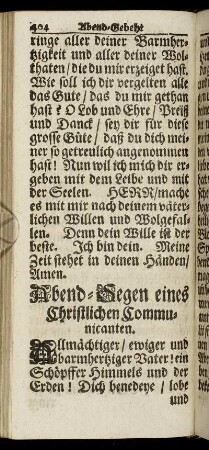 404 Abend-Gebeht
ringe aller deiner Barmher-
tzigkeit und aller deiner Wol-
thaten / die du mir erzeiget hast.
Wie soll ich dir vergelten alle
das Gute / das du mir gethan
hast? O Lob und Ehre / Preiß
und Danck / sey dir für diese
grosse Güte / daß du dich mei-
ner so getreulich angenommen
hast! Nun will ich mich dir er-
geben mit dem Leibe und mit
der Seelen. HERR / mache
es mit mir nach deinem väter-
lichen Willen und Wolgefal-
len. Denn dein Wille ist der
beste. Ich bin dein. Meine
Zeit stehet in deinen Händen /
Amen.
Abend-Segen eines
Christlichen Commu-
nicanten.
Allmächtiger / ewiger und
barmhertziger Vater! ein
Schöpffer Himmels und der
Erden! Dich benedeye / lobe
und